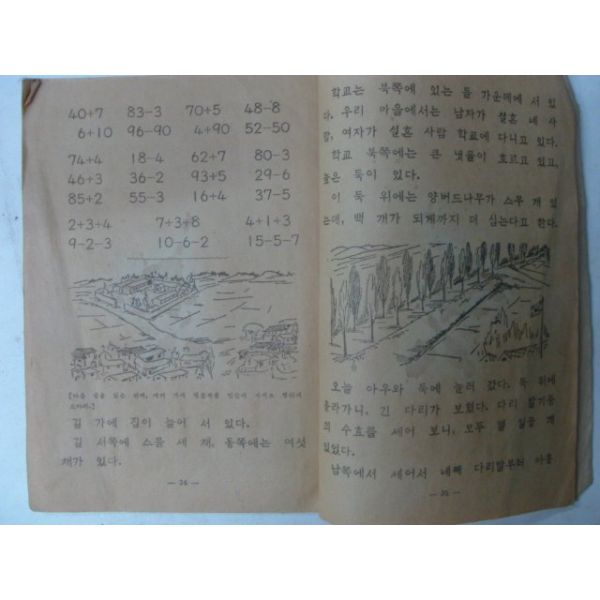 40+7 83-3 70+5 48-8
6+10 96-90 4+90 52-50
74+4 18-4 62+7 80-3
46+3 36-2 93+5 29-6
85+2 55-3 16+4 37-5
2+3+4 7+3+8 4+1+3
9-2-3 10-6-2 15-5-7
길 가에 집이 늘어 서 있다.
길 서쪽에 스물 세 채, 동쪽에는 여섯
채가 있다.
— 34 —
학교는 북쪽에 있는 들 가운데에 서 있
다. 우리 마을에서는 남자가 설흔 네 사
람, 여자가 설흔 사람 학교에 다니고 있다.
학교 북쪽에는 큰 냇물이 흐르고 있고,
높은 둑이 있다.
이 둑 위에는 양버드나무가 스무 개 있
는데, 백 개가 되게까지 더 심는다고 한다.
오늘 아우와 둑에 놀러 갔다. 둑 위에
올라가니, 긴 다리가 보였다. 다리
의 수효를 세어 보니, 모두 열 일곱 개
있었다.
남쪽에서 세어서 네째 다리발부터
— 35 —